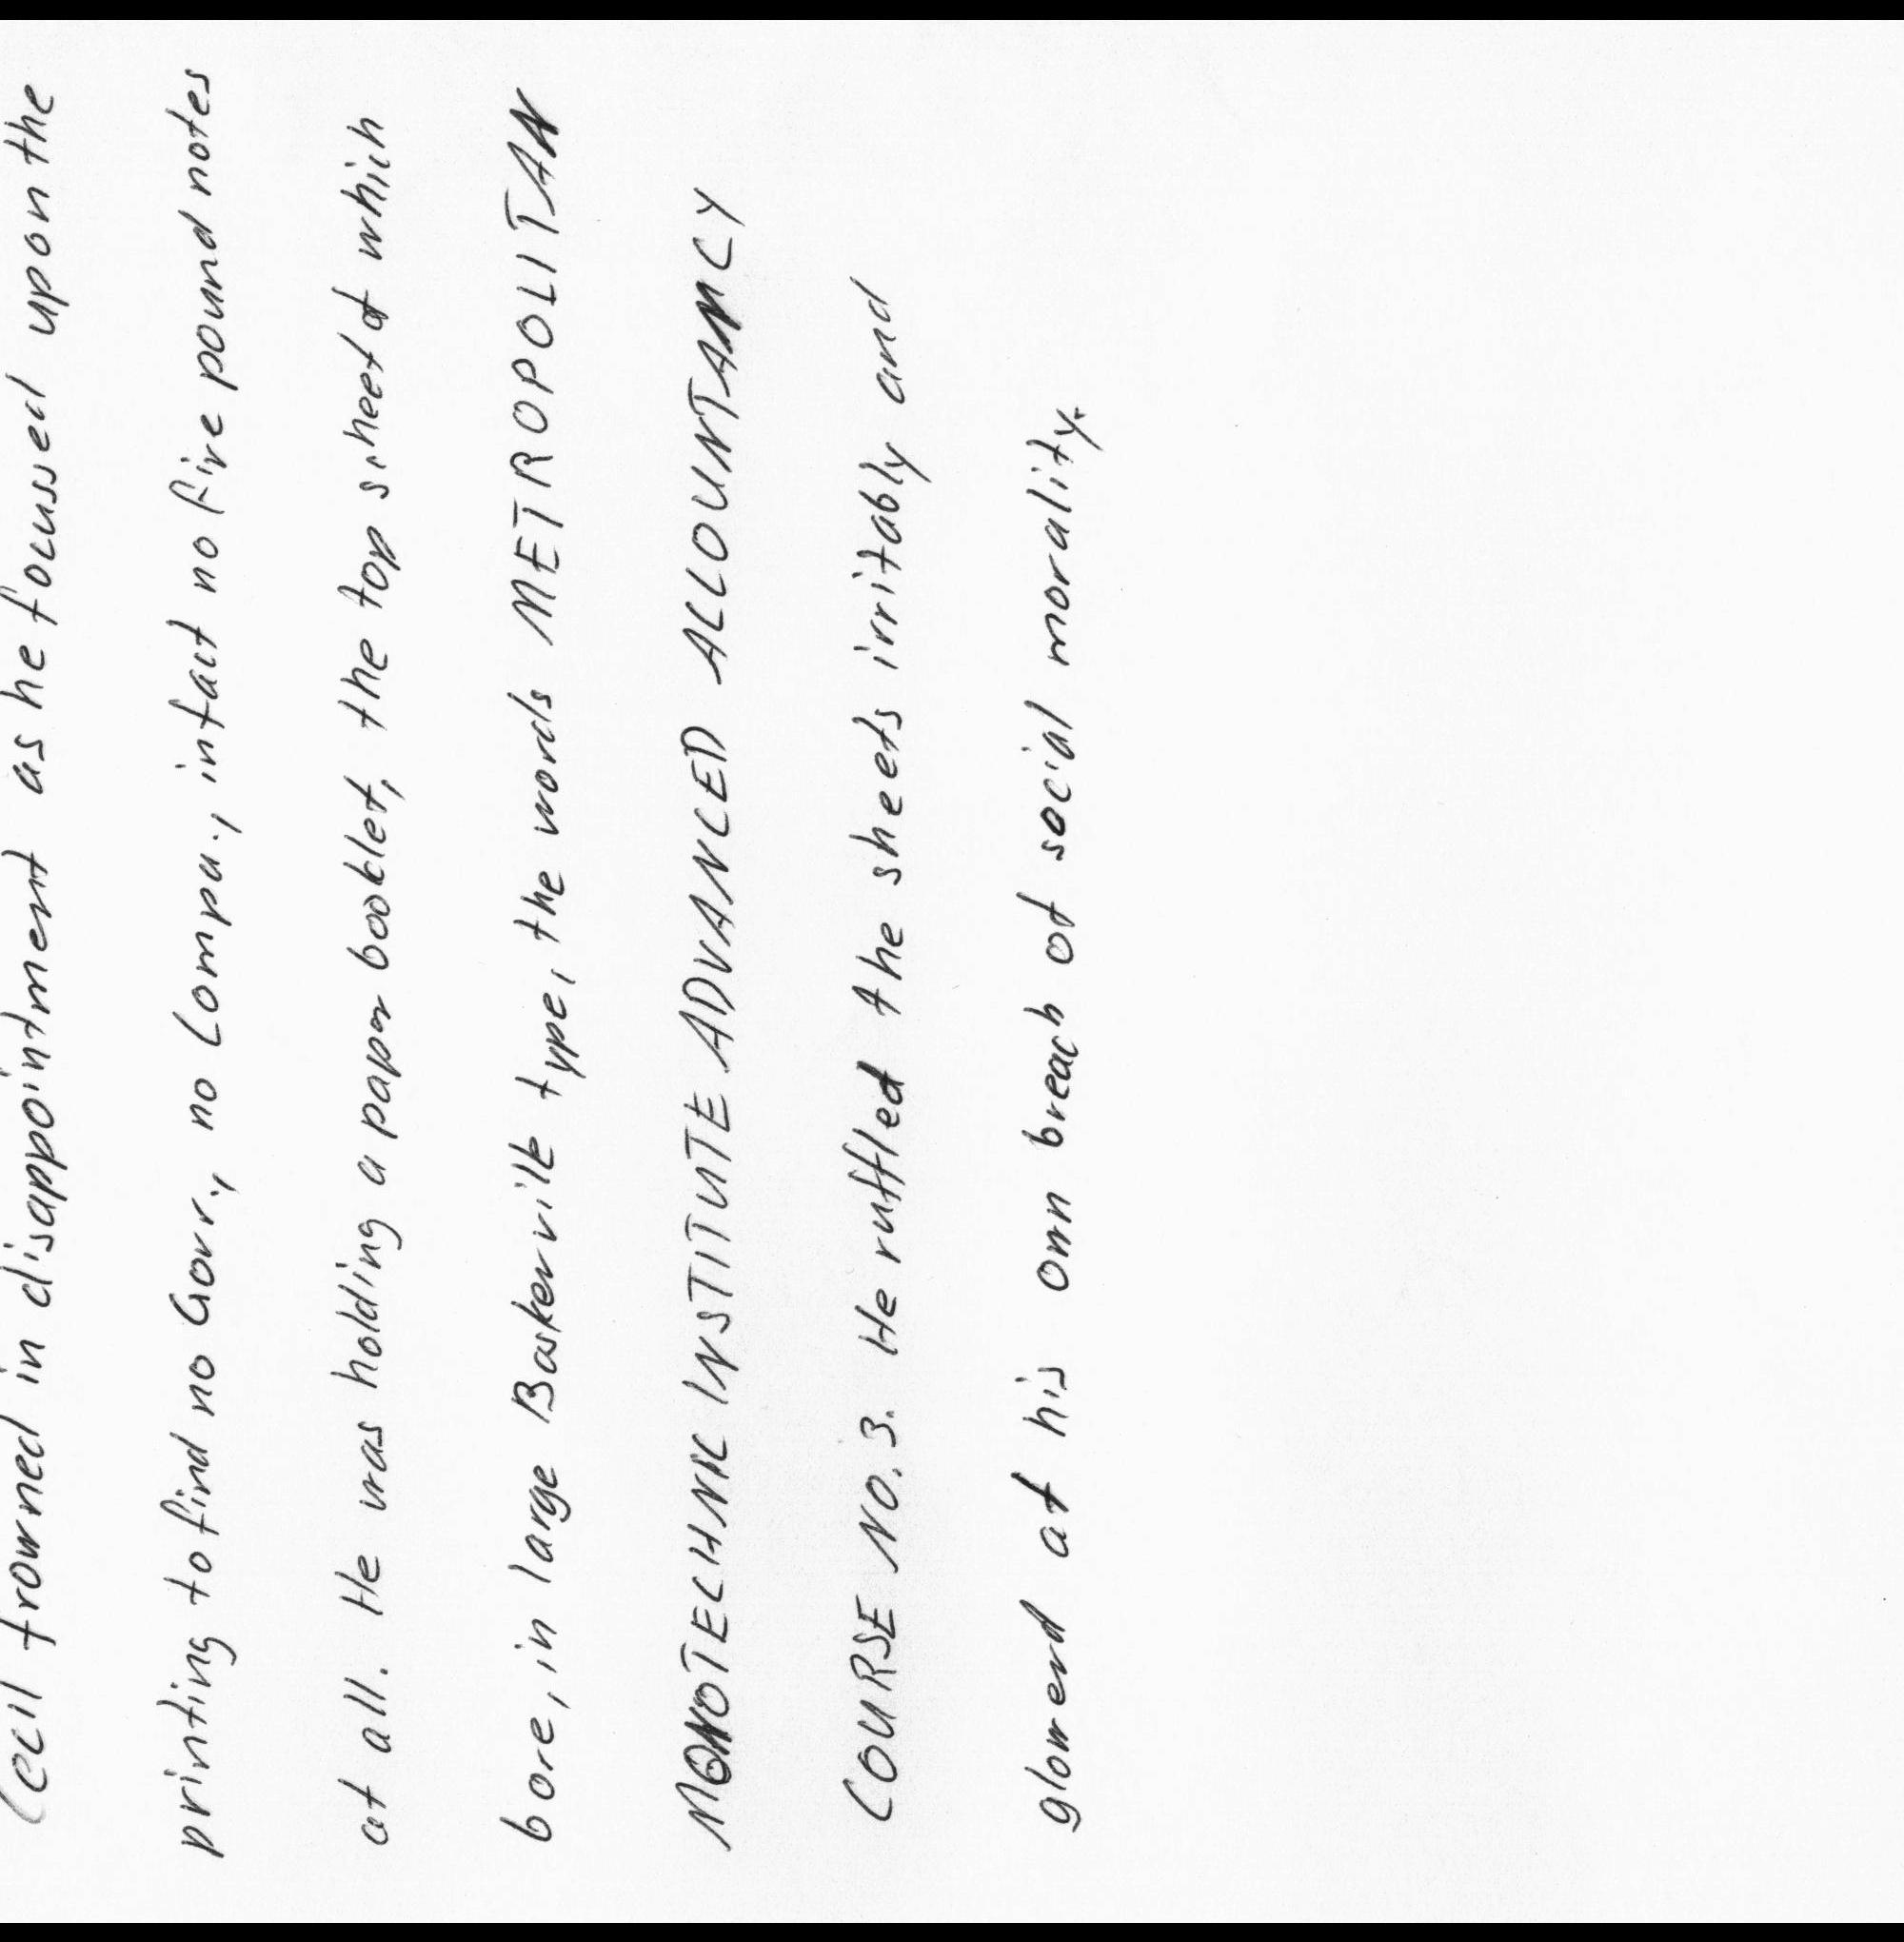 Cecil frowned in disappointment as he focussed upon the
printing to find no Govr., no Compa., in fact no five pound notes
at all. He was holding a paper booklet, the top sheet of which
bore, in large Baskerville type, the words METROPOLITAN
MONOTECHNIC INSTITUTE ADVANCED ACCOUNTANCY
COURSE NO. 3. He ruffled the sheets irritably and
glowered at his own breach of social morality.